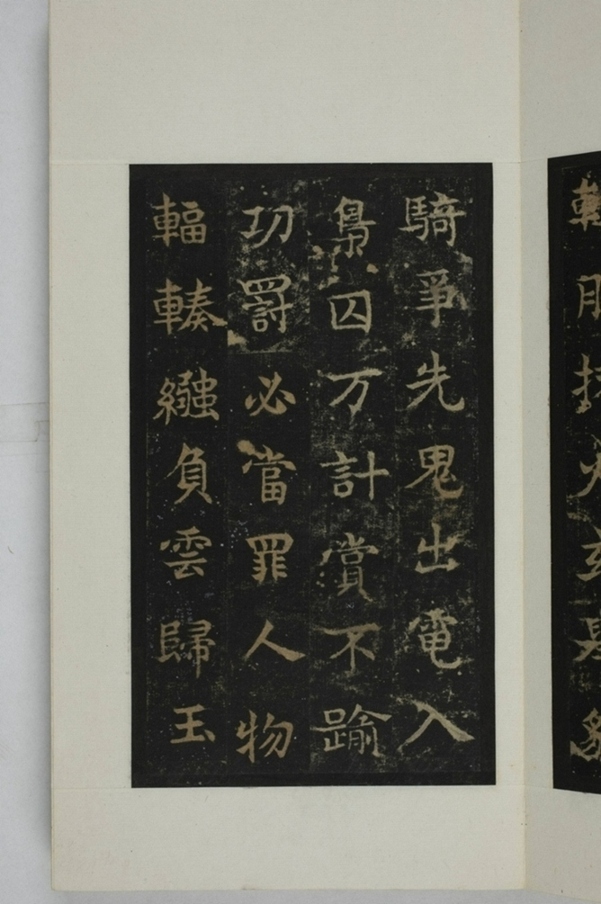 騎爭先鬼出電入
梟囚万計賞不踰
功罰必當罪人物
輻輳繈負雲歸王